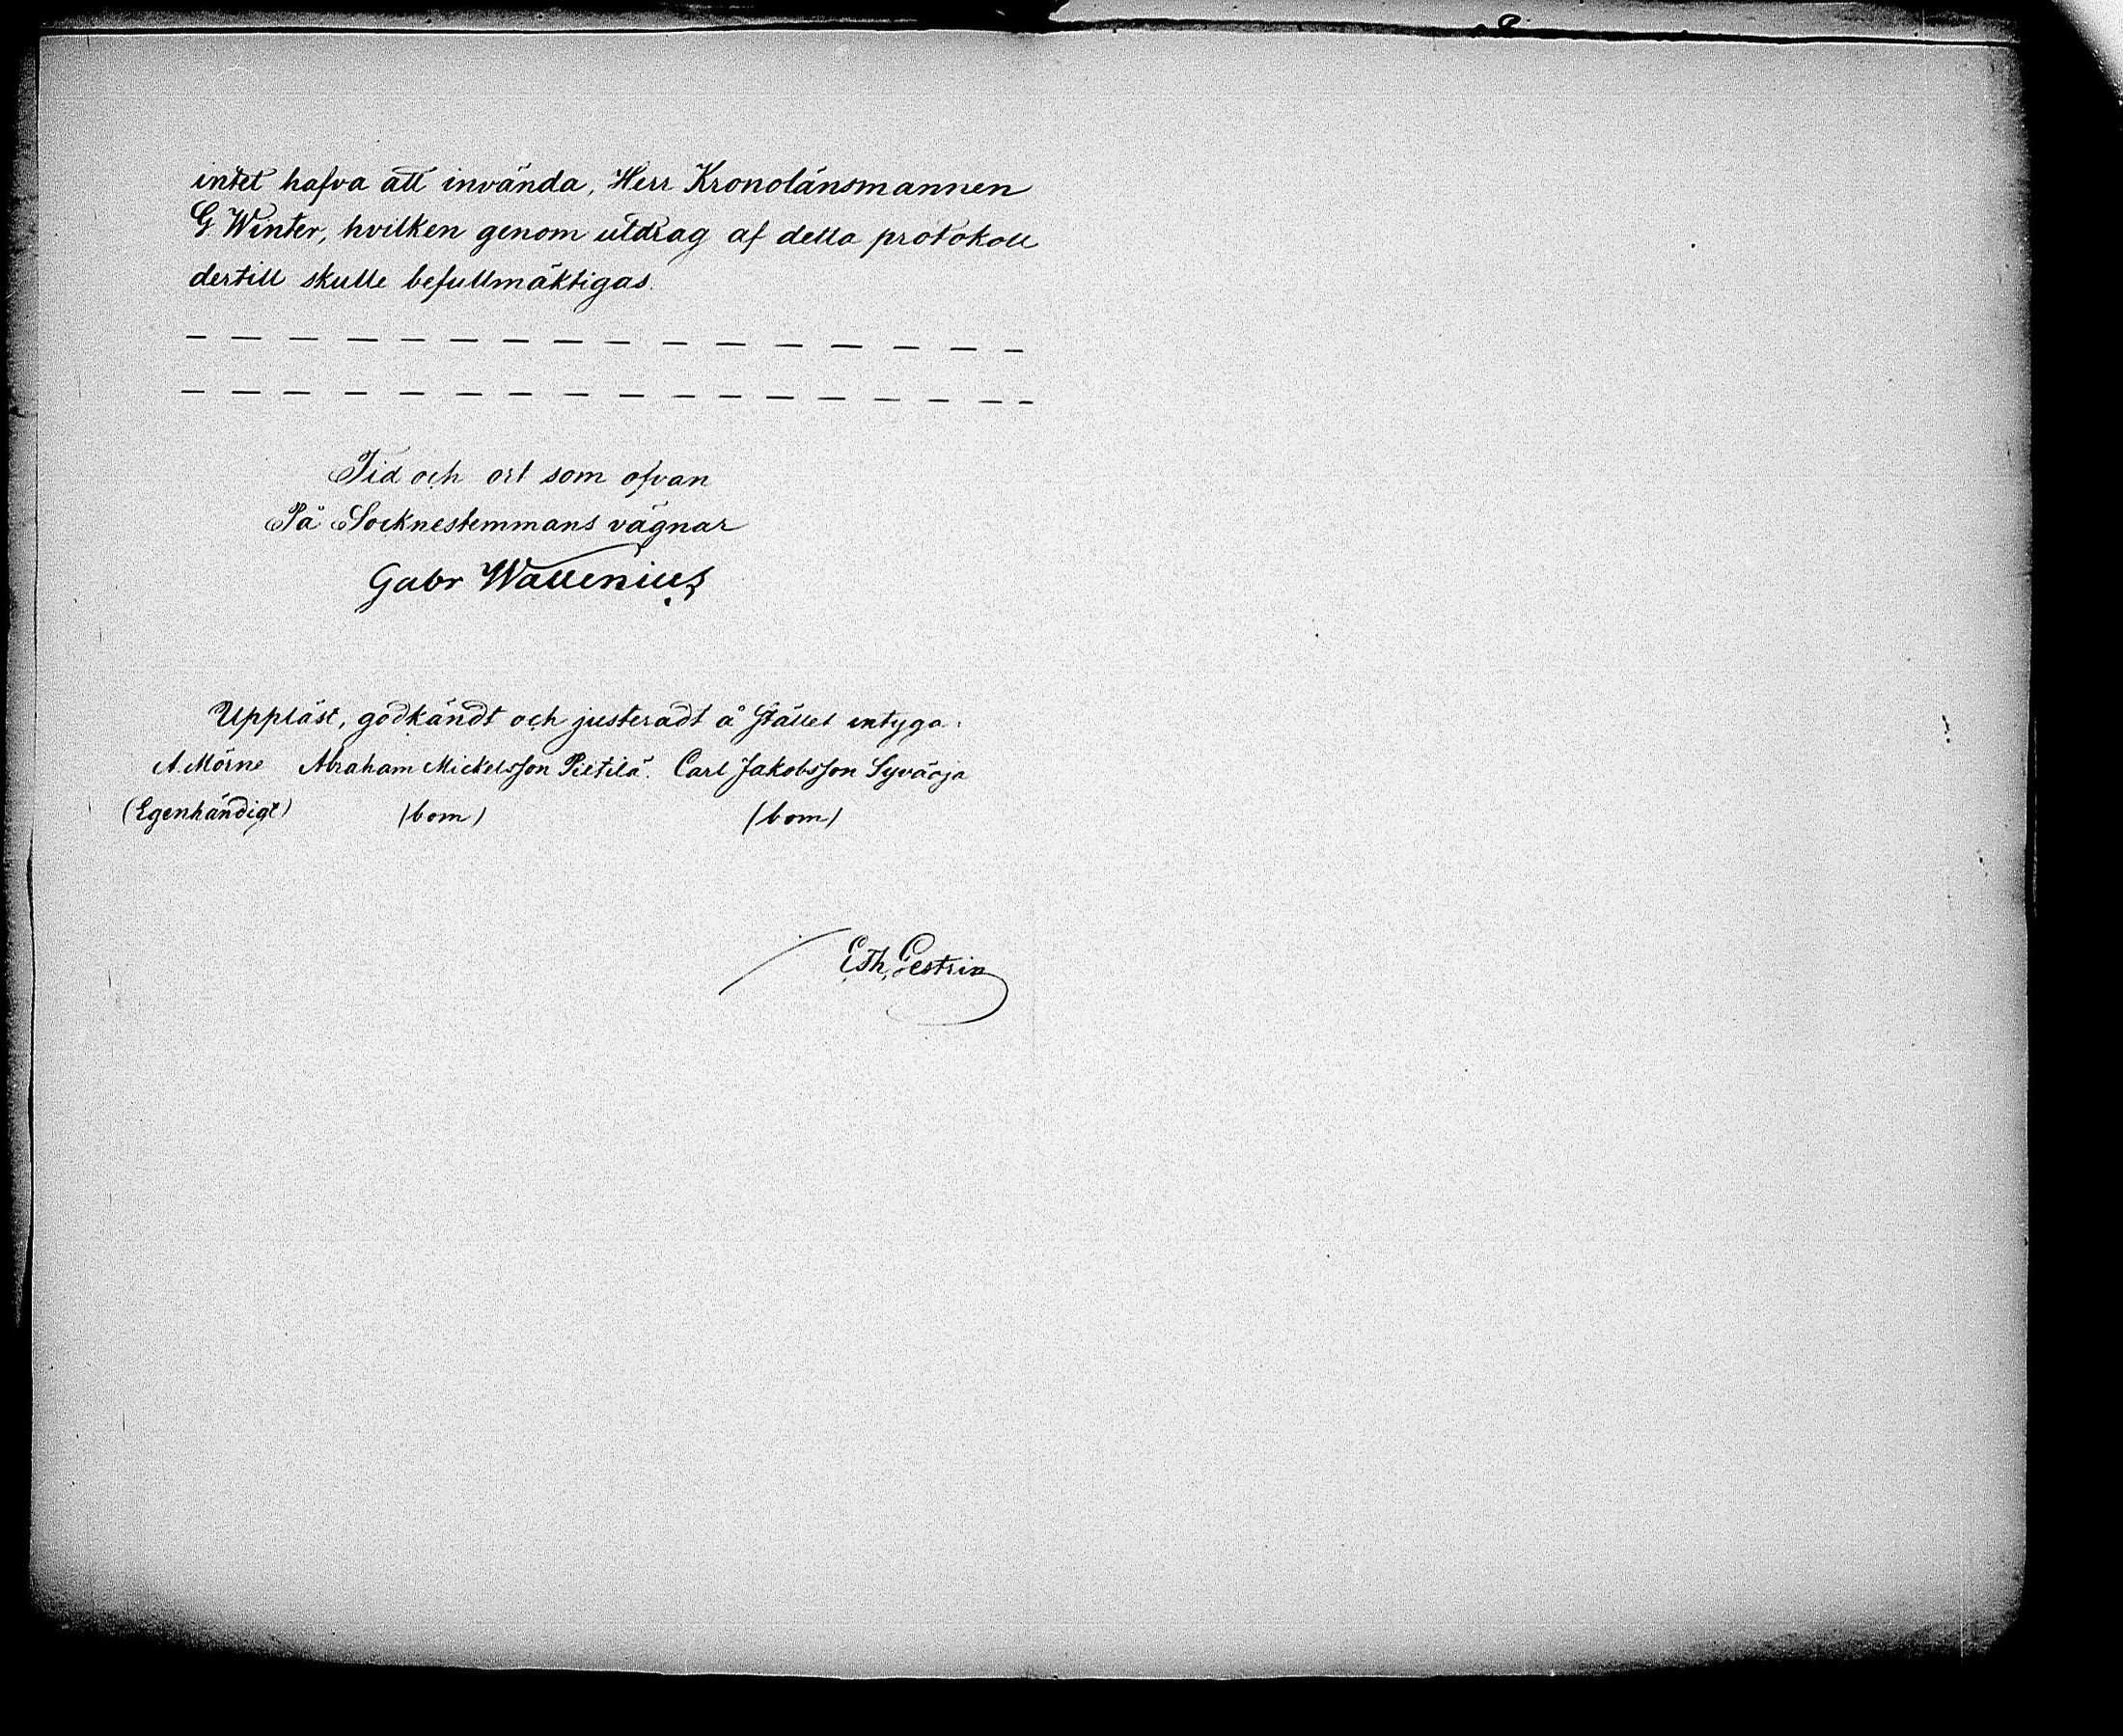 intet hafva att invända, Herr Kronolänsmannen
G Winter, hvilken genom utdrag af detta protokoll
dertill skulle befullmäktigas.
— — — — — — — — — — — — — — — —
— — — — — — — — — — — — — — — —
Tid och ort som ofvan
På Socknestemmans vägnar
Gabr Wallenius
Uppläst, godkändt och justeradt å stället intyga:
A. Mörne Abraham Mickelsson Pietilä. Carl Jakobsson Syväoja
(Egenhändigt) (bom) (bom)
E. Th. Gestrin